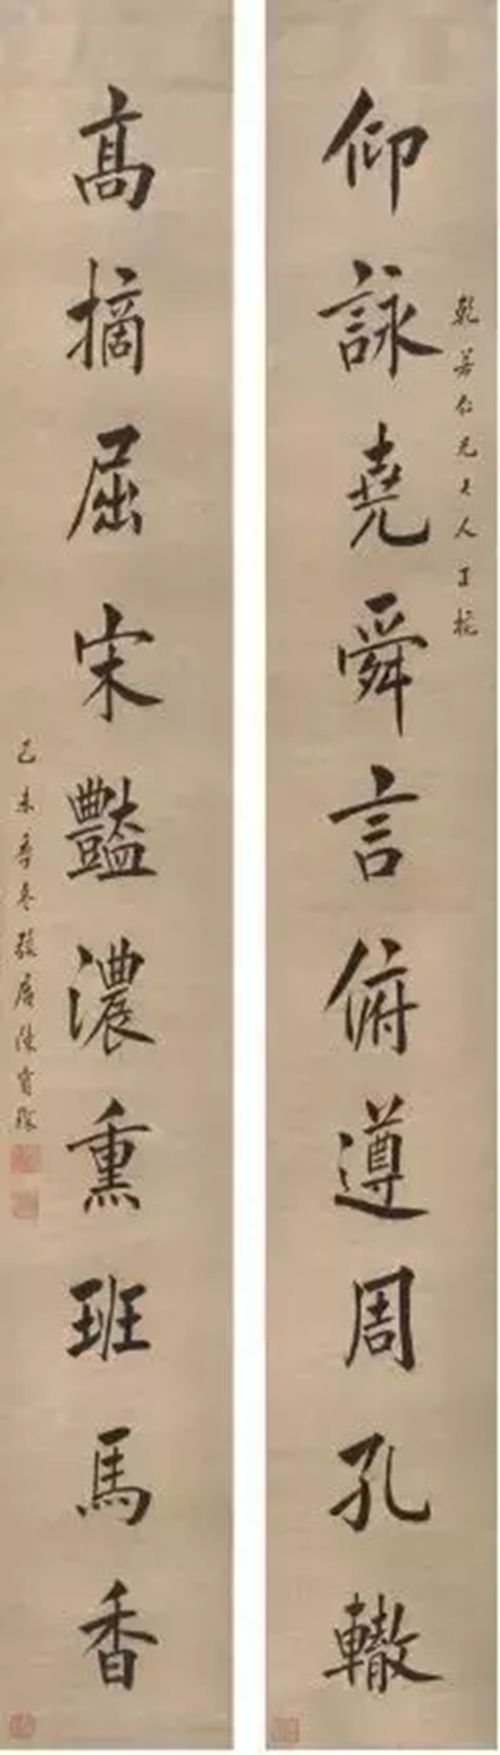 乾若仁兄大人正梡
仰詠堯舜言俯遵周孔轍
高摘屈宋豔濃熏班馬香
己未季冬弢庵陳寶琛